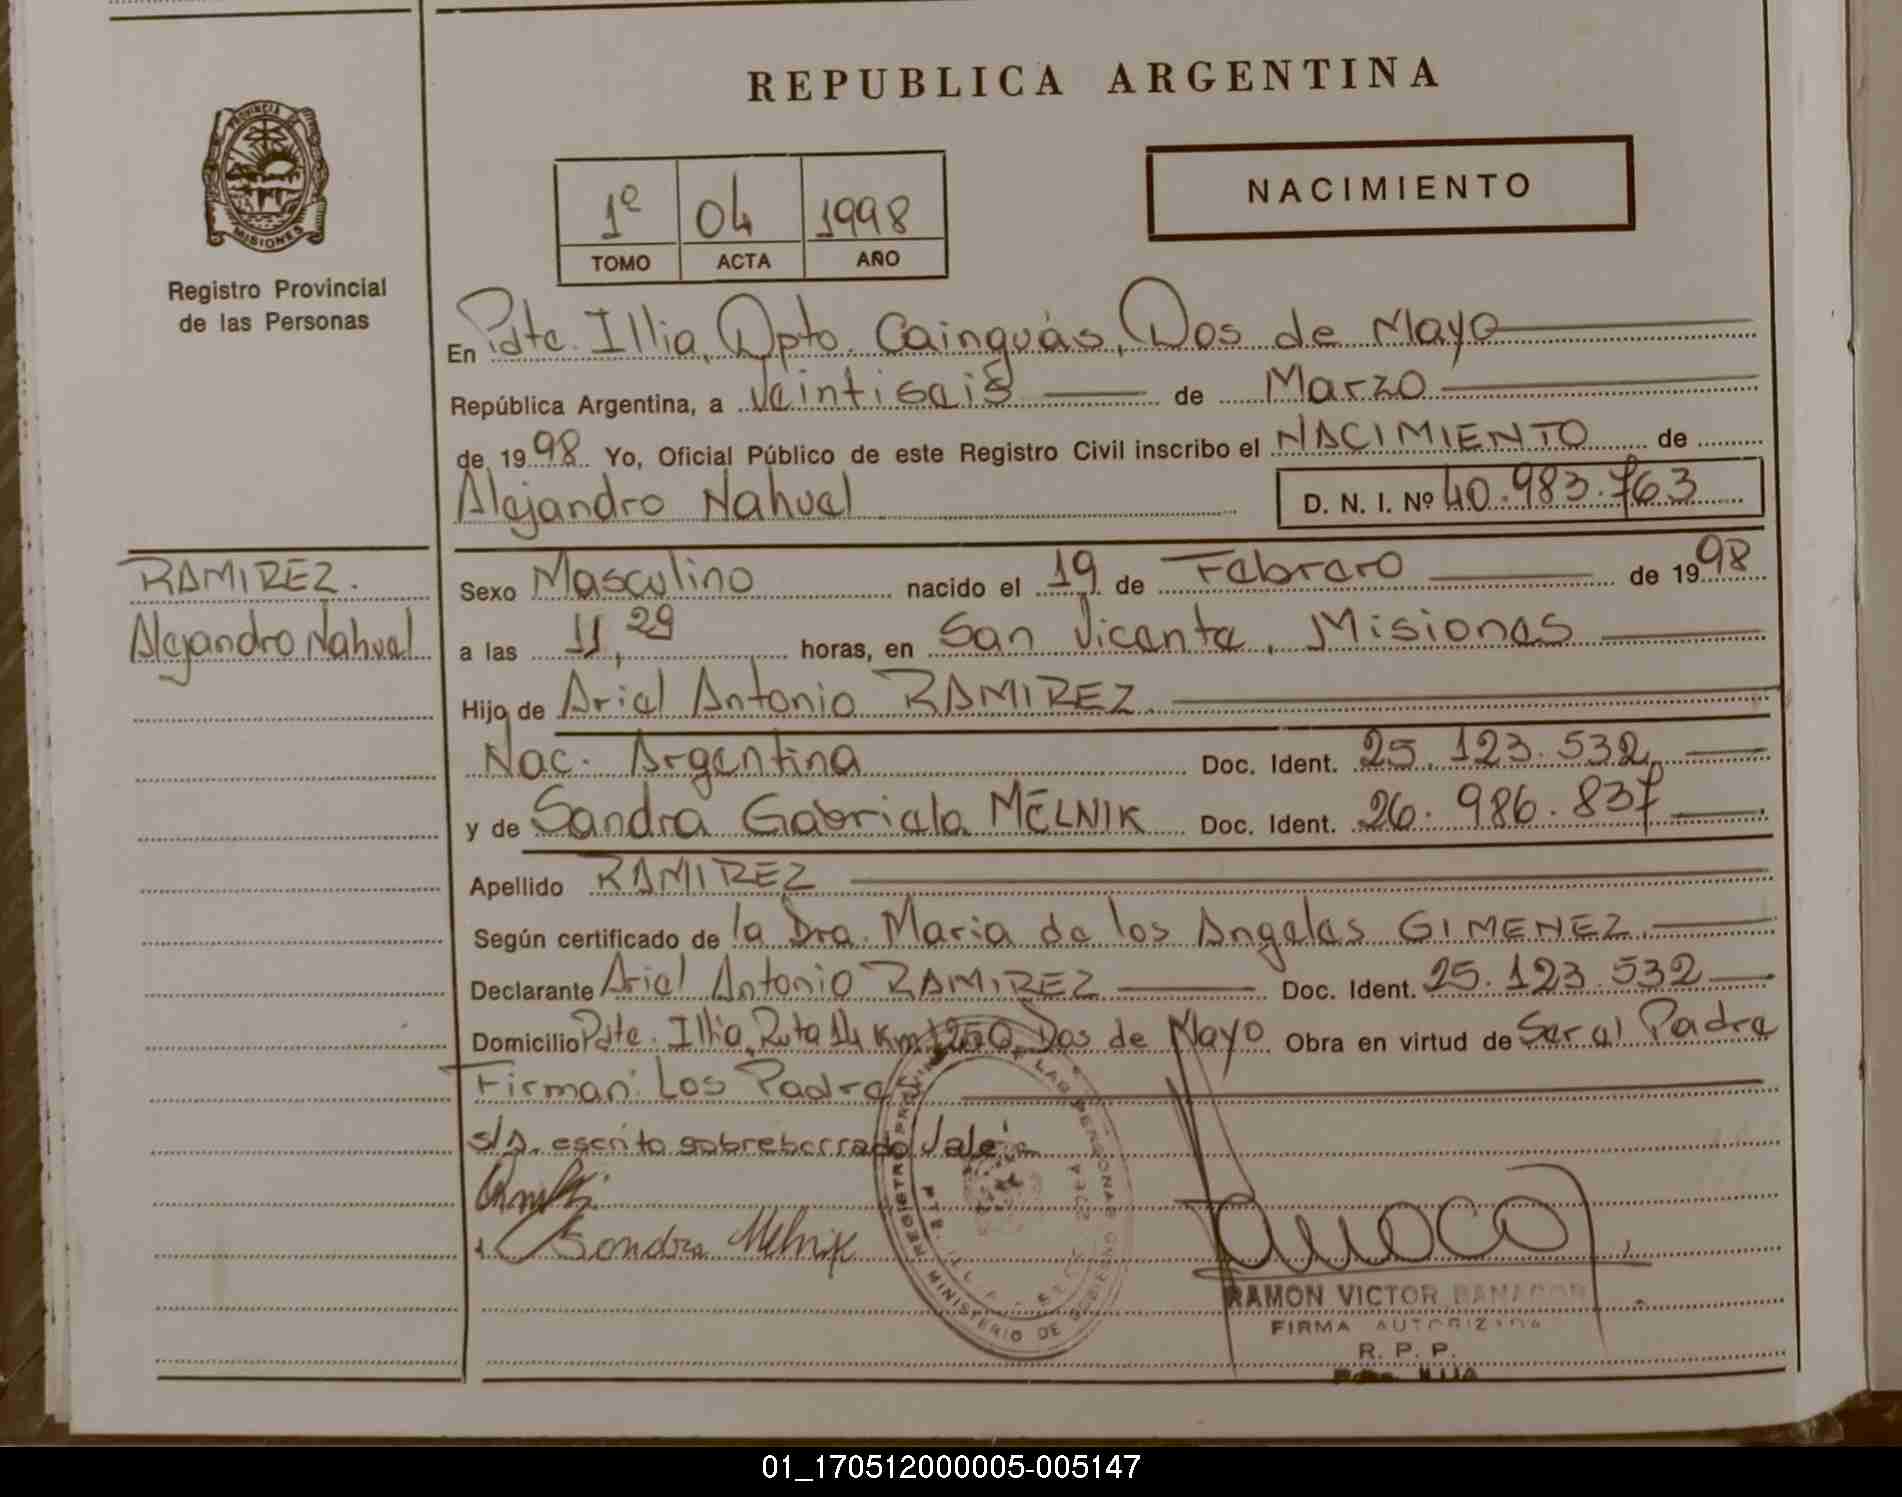 REPUBLICA ARGENTINA
PROVINCIA DE
MISIONES
Registro Provincial
de las Personas
1º 04 1998
TOMO ACTA AÑO
NACIMIENTO
En Pdte. Illia, Dpto. Cainguás, Dos de Mayo
República Argentina, a Veintiseis de Marzo
de 1998 Yo, Oficial Público de este Registro Civil inscribo el NACIMIENTO de
Alejandro Nahuel D. N. I. Nº 40.983.763
RAMIREZ.
Alejandro Nahuel
Sexo Masculino nacido el 19 de Febrero de 1998
a las 11,29 horas, en San Vicente, Misiones
Hijo de Ariel Antonio RAMIREZ
Nac. Argentina Doc. Ident. 25.123.532
y de Sandra Gabriela MELNIK Doc. Ident. 26.986.837
Apellido RAMIREZ
Según certificado de la Dra. Maria de los Angeles GIMENEZ
Declarante Ariel Antonio RAMIREZ Doc. Ident. 25.123.532
Domicilio Pdte. Illia, Ruta 14 Km 1250, Dos de Mayo Obra en virtud de Ser el Padre
Firman: Los Padres
s/A. escrito sobreborrado Vale
Sandra Melnik
REGISTRO PROVINCIAL DE LAS PERSONAS
MINISTERIO DE GOBIERNO
PTE. ILLIA
RAMON VICTOR
FIRMA AUTORIZADA
R. P. P.
Pdte. ILLIA
01_170512000005-005147